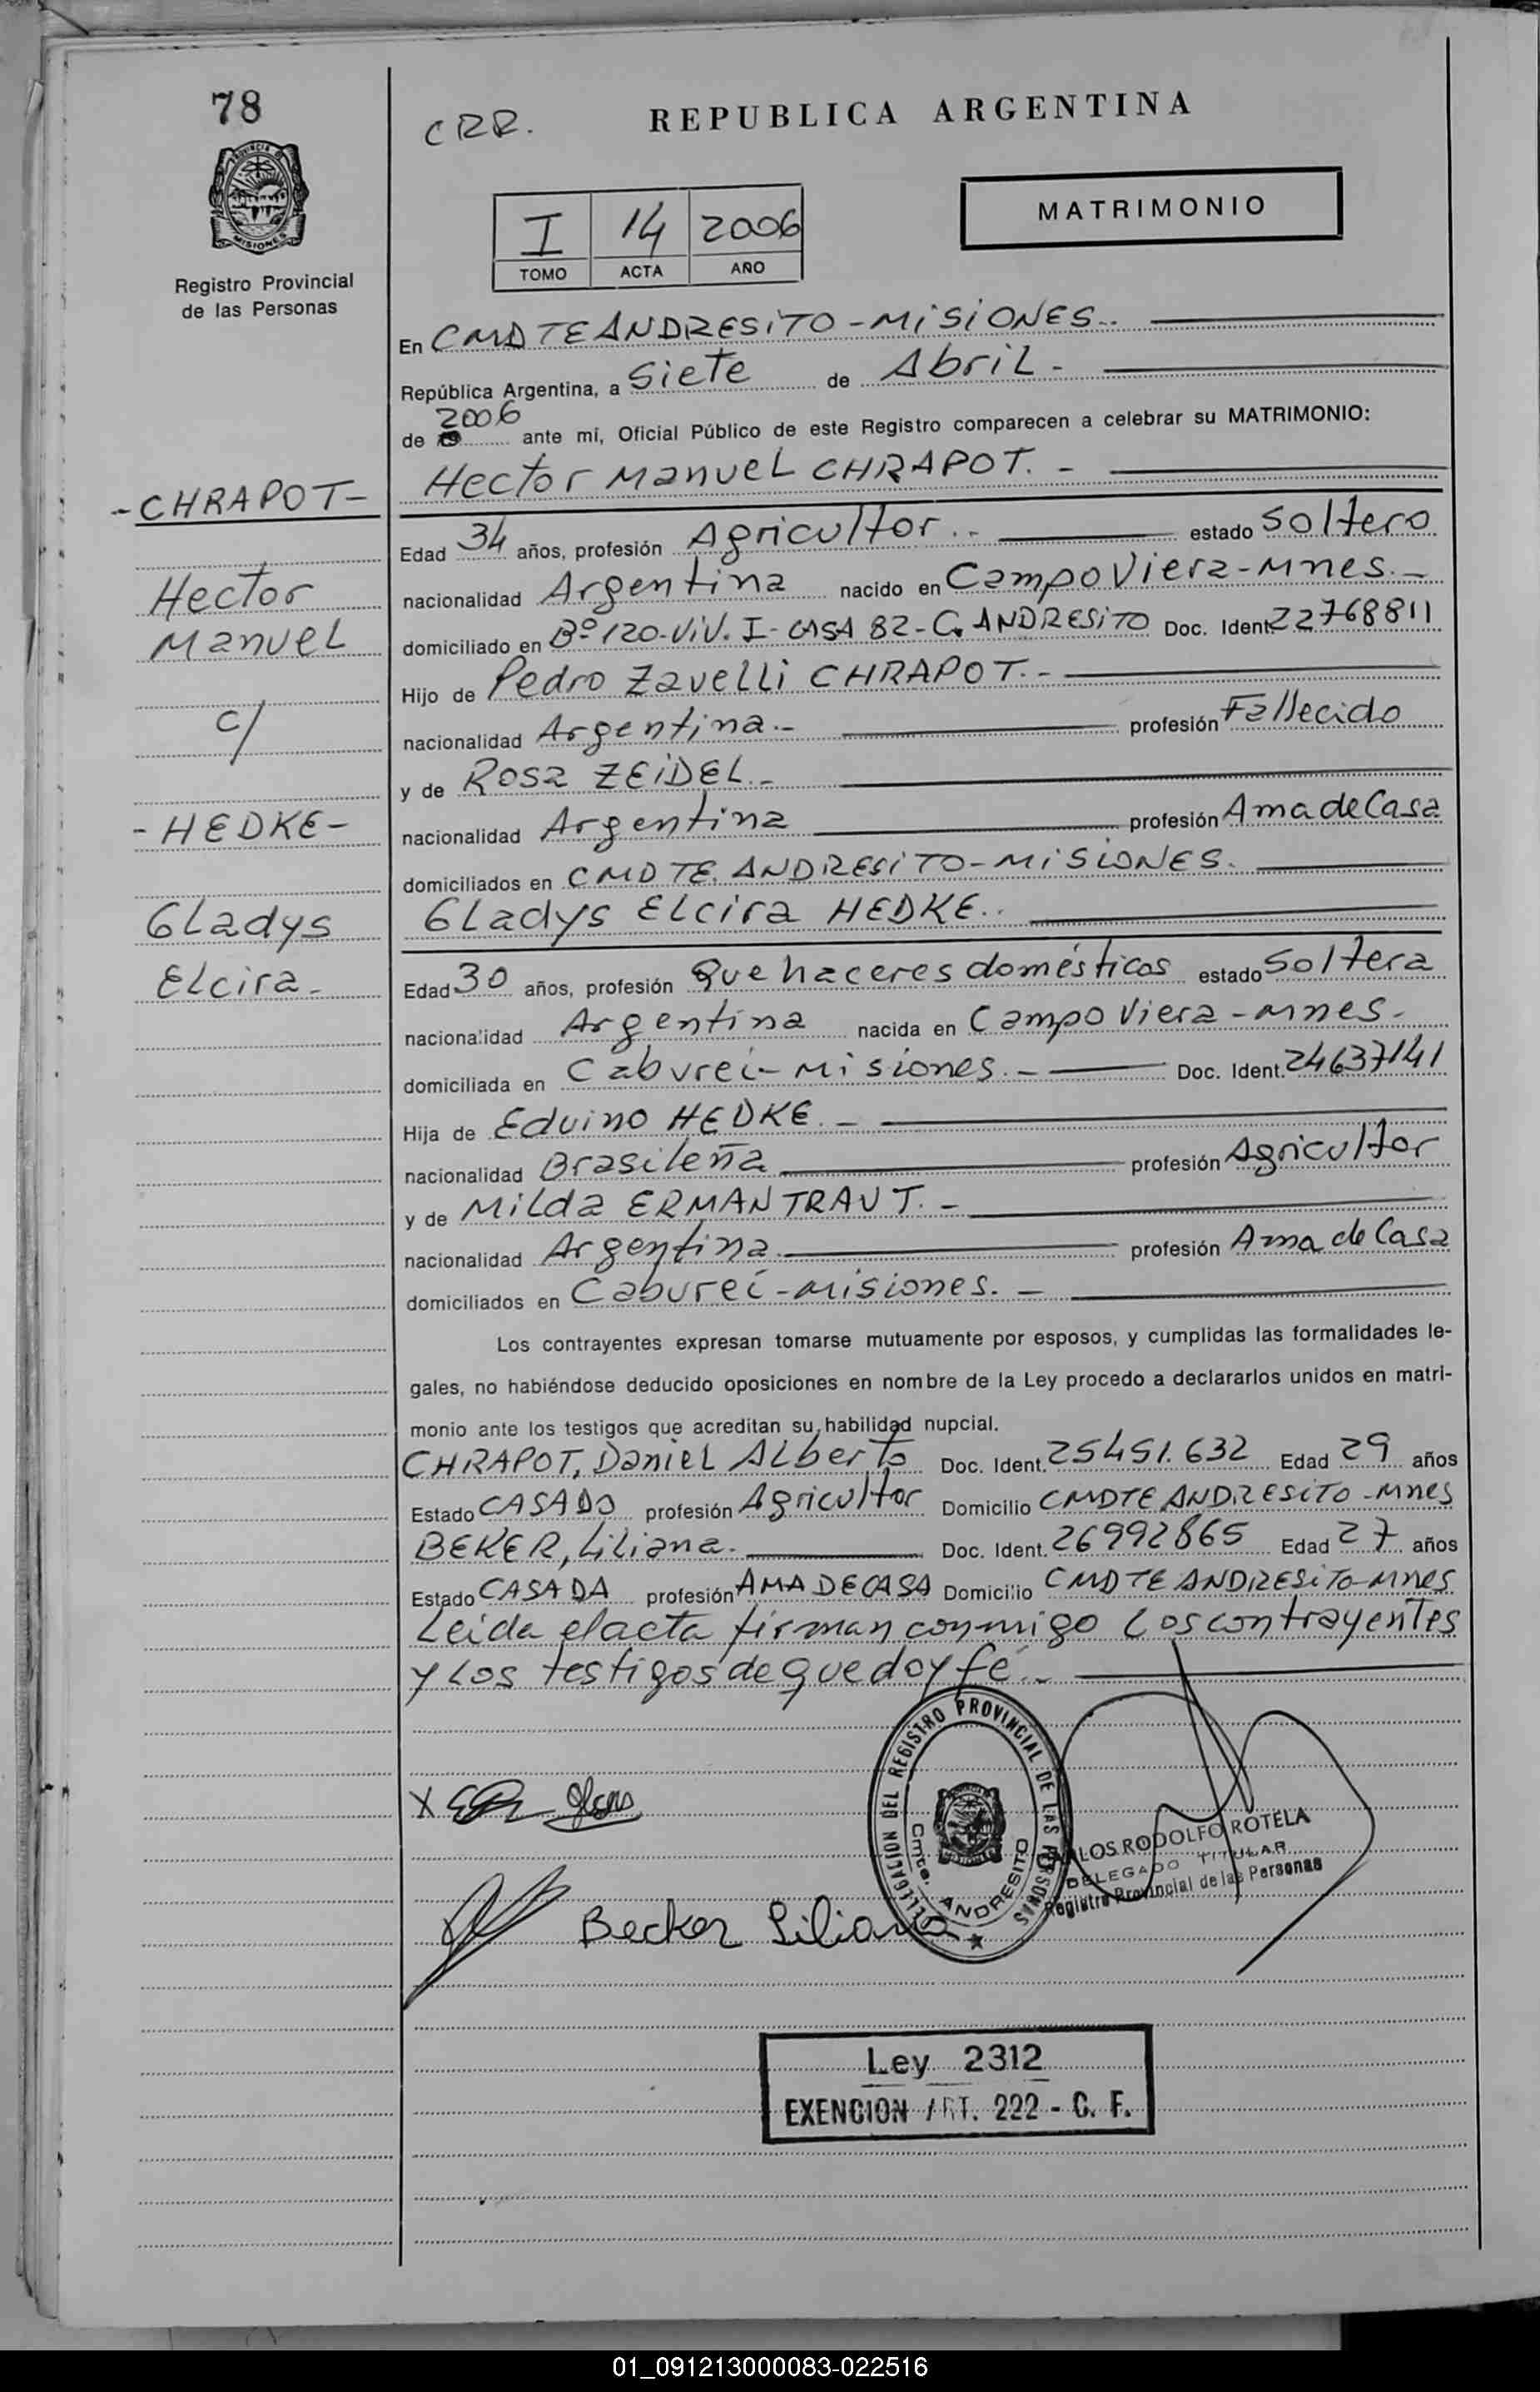 78
PROVINCIA DE
MISIONES
Registro Provincial
de las Personas
CRR.
REPUBLICA ARGENTINA
I 14 2006
TOMO ACTA AÑO
MATRIMONIO
En CMDTE ANDRESiTO - MiSiONES..
República Argentina, a SieTe de AbriL -
2006
de ante mí, Oficial Público de este Registro comparecen a celebrar su MATRIMONIO:
Hector ManueL CHRAPOT. -
- CHRAPOT -
Edad 34 años, profesión Agricultor .- estado Soltero
Hector
nacionalidad Argentina nacido en Campo Viera - Mnes. -
ManueL
domiciliado en Bº 120-ViV. I - CASA 82 - C. ANDRESiTO Doc. Ident. 22768811
Hijo de Pedro Zavelli CHRAPOT. -
c/
nacionalidad Argentina. - profesión Fallecido
y de Rosa ZEiDEL. -
- HEDKE -
nacionalidad Argentina profesión Ama de Casa
domiciliados en CMDTE. ANDRESiTO - MiSiONES.
GLadys
GLadys ELcira HEDKE..
ELcira -
Edad 30 años, profesión Que haceres domésticos estado Soltera
nacionalidad Argentina nacida en Campo Viera - Mnes -
domiciliada en Cabureí - Misiones. - Doc. Ident. 24637141
Hija de Eduino HEDKE. -
nacionalidad Brasileña profesión Agricultor
y de MiLda ERMANTRAUT. -
nacionalidad Argentina profesión Ama de Casa
domiciliados en Cabureí - Misiones. -
Los contrayentes expresan tomarse mutuamente por esposos, y cumplidas las formalidades le-
gales, no habiéndose deducido oposiciones en nombre de la Ley procedo a declararlos unidos en matri-
monio ante los testigos que acreditan su habilidad nupcial.
CHRAPOT, DanieL ALberto Doc. Ident. 25451.632 Edad 29 años
Estado CASADO profesión Agricultor Domicilio CMDTE ANDRESiTO - Mnes
BEKER, Liliana. Doc. Ident. 26992865 Edad 27 años
Estado CASADA profesión AMA DE CASA Domicilio CMDTE ANDRESiTO - Mnes
Leida el acta firman conmigo Los contrayentes
y Los testigos de que doy fe..
X
DELEGACION DEL REGISTRO PROVINCIAL DE LAS PERSONAS
Cmte. ANDRESITO
LOS RODOLFO ROTELA
DELEGADO TITULAR
Registro Provincial de las Personas
Becker Liliana
Ley 2312
EXENCION ART. 222 - C. F.
01_091213000083-022516